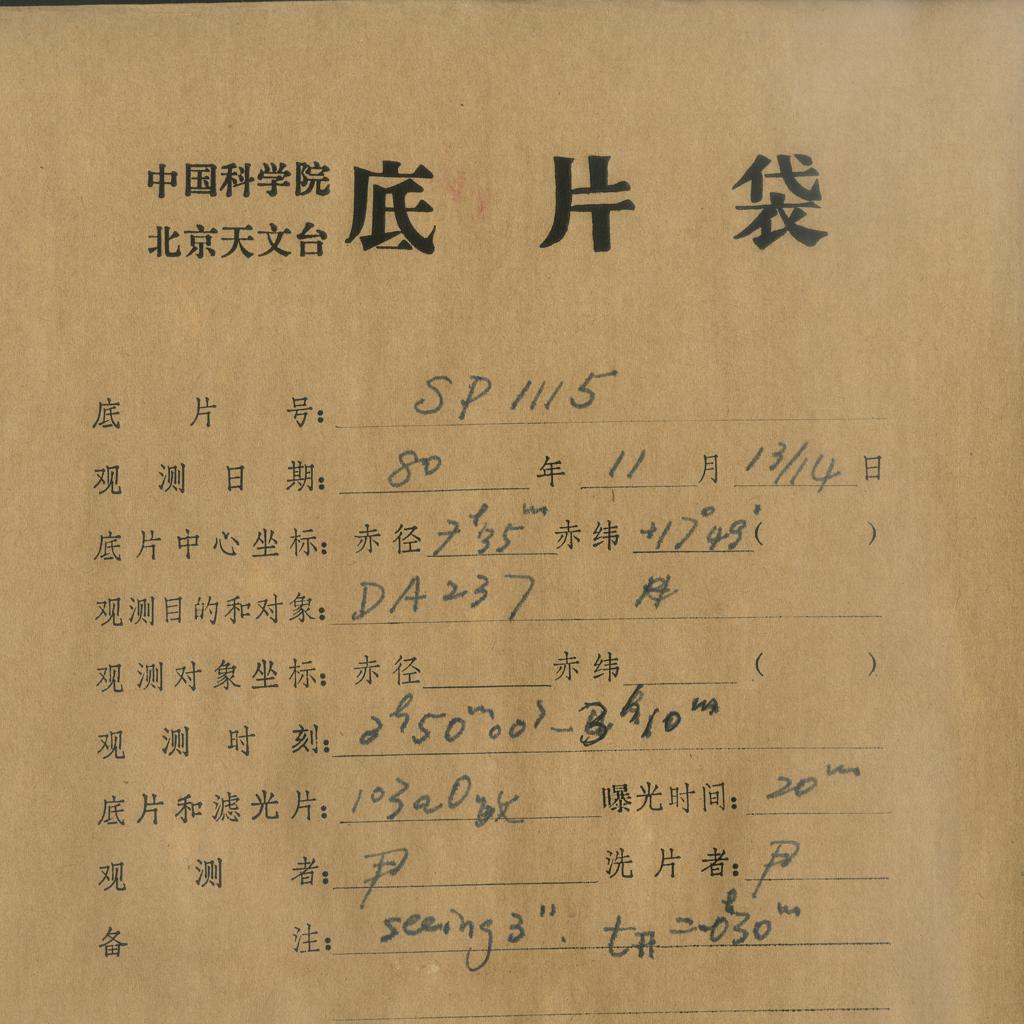 中国科学院
北京天文台
底片袋
底片号: SP 1115
观测日期: 80 年 11 月 13/14 日
底片中心坐标: 赤径 7h35m 赤纬 +17°49' ( )
观测目的和对象: DA237
观测对象坐标: 赤径 赤纬 ( )
观测时刻: 2h50m00s - 3h10m
底片和滤光片: 103aO敏 曝光时间: 20m
观测者: 尹 洗片者: 尹
备注: seeing 3". t开 = -0h30m